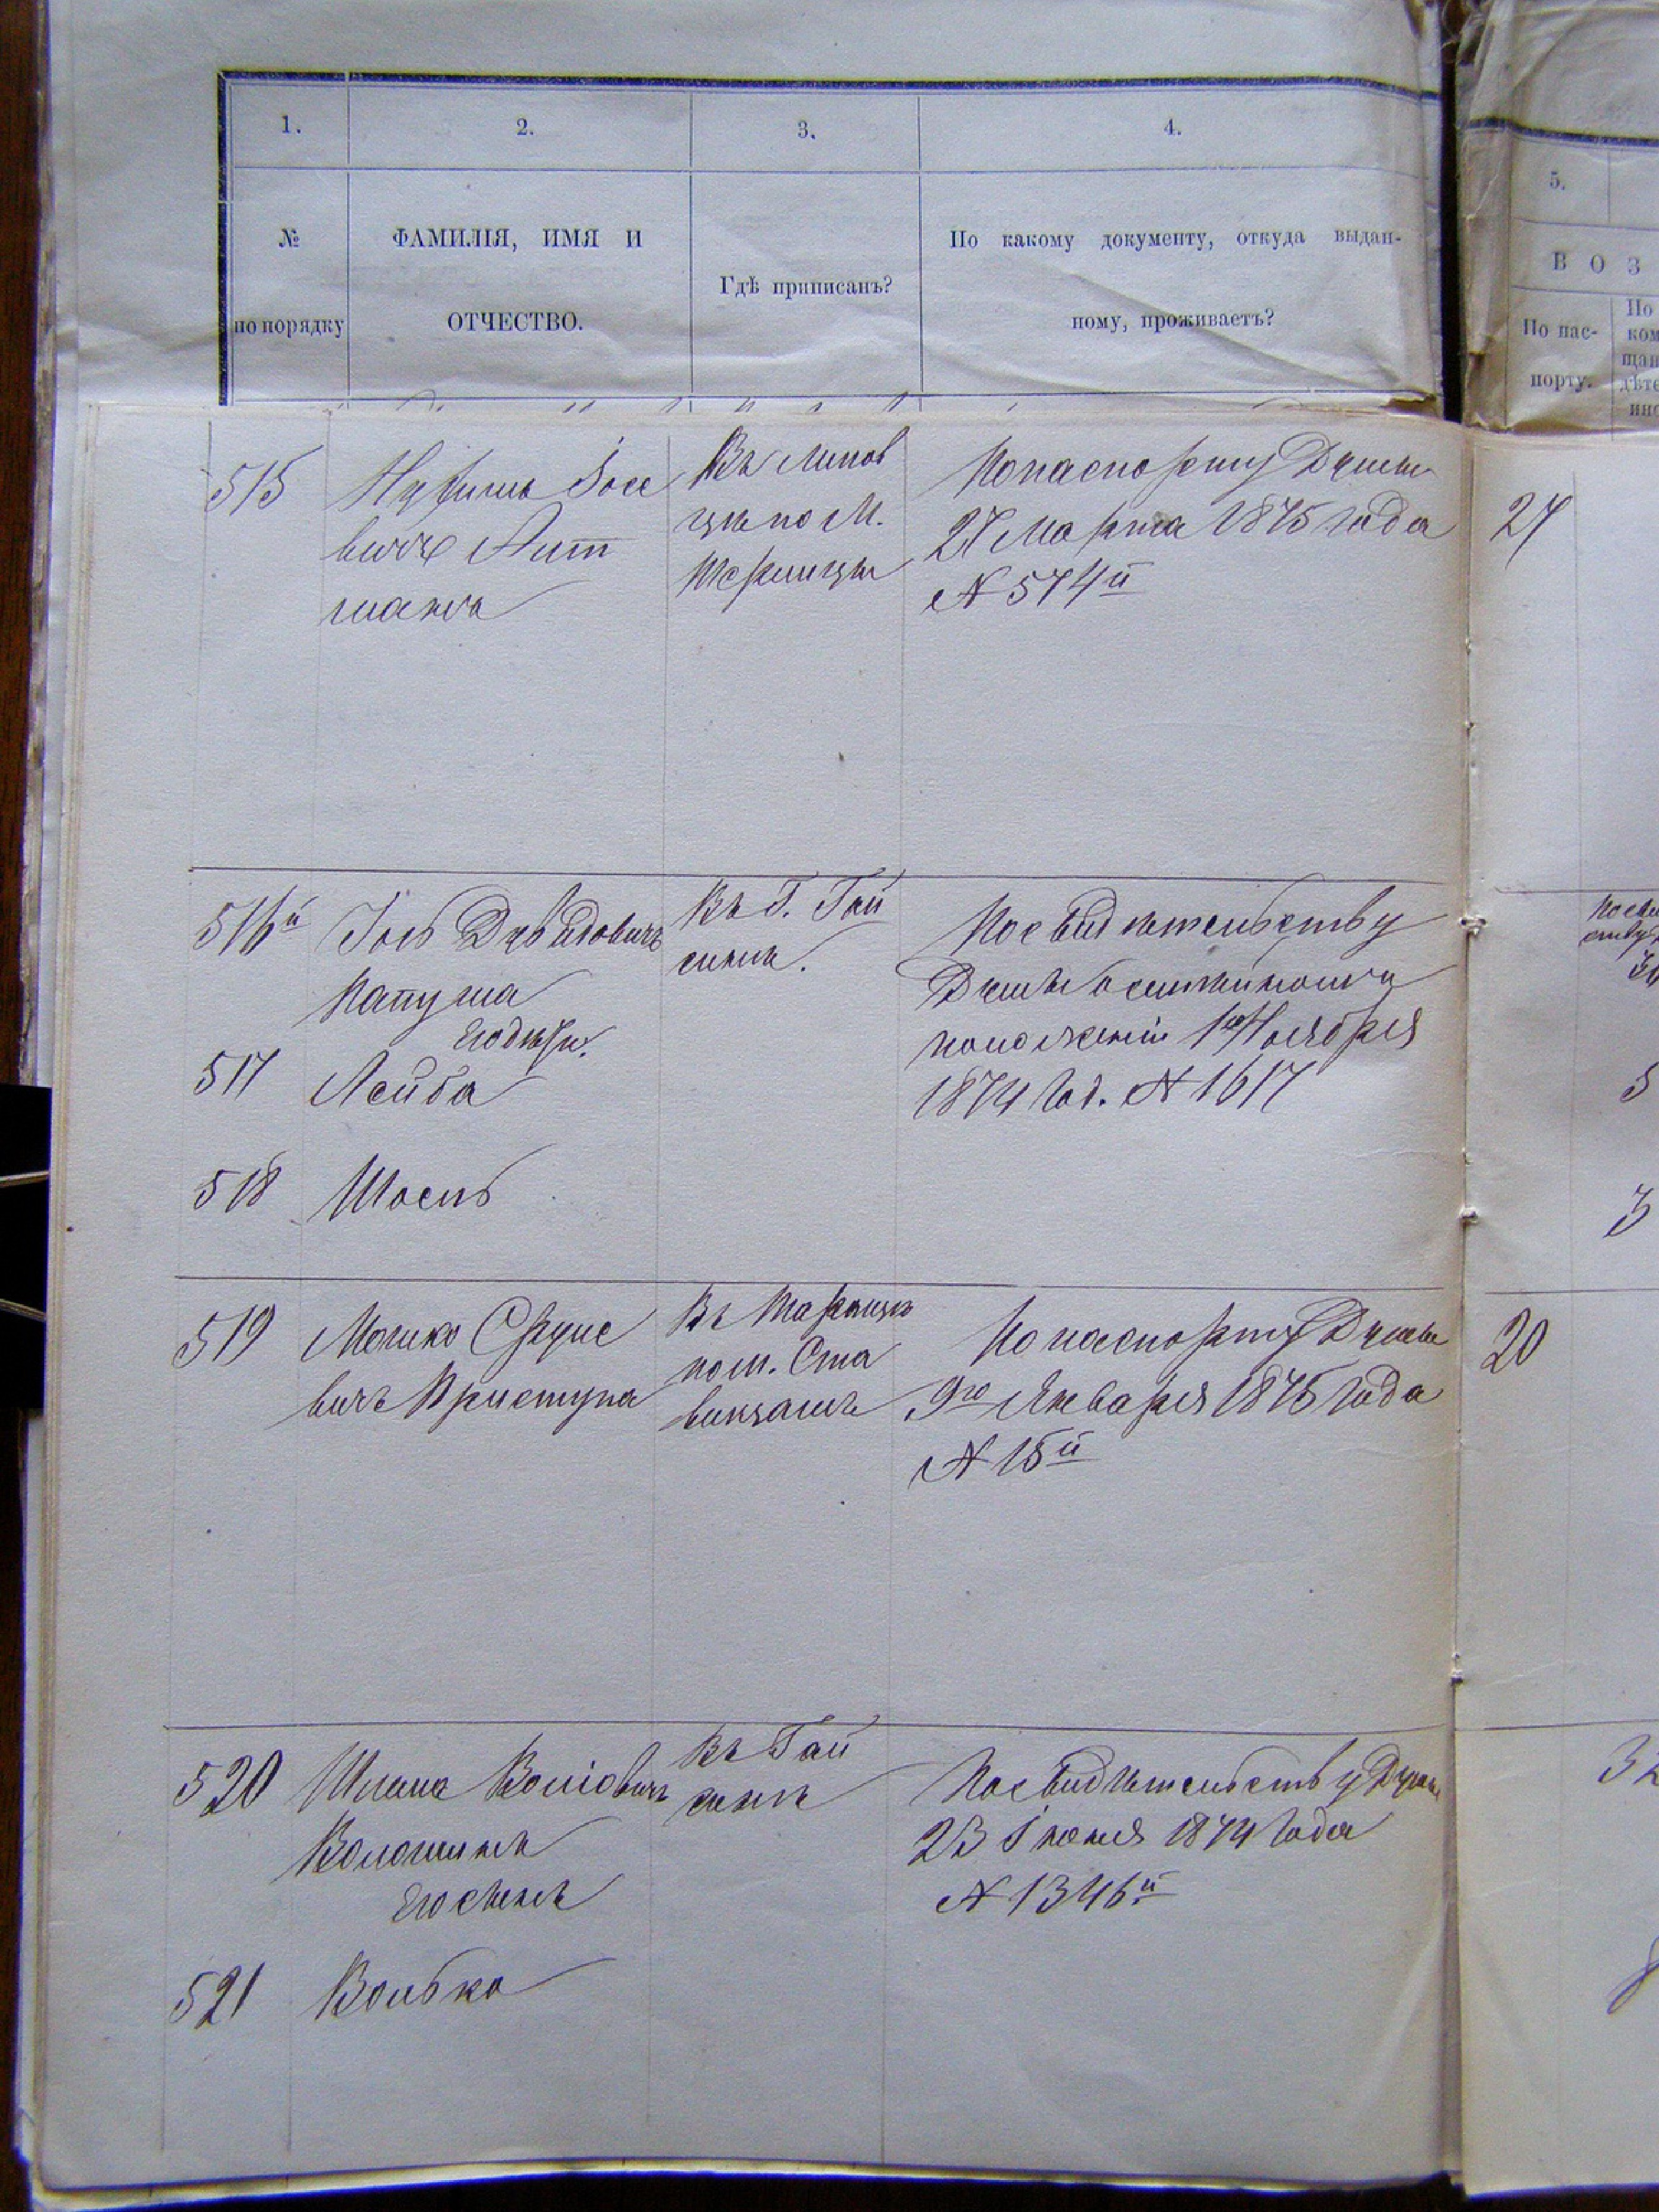 1.
2.
3.
4.
5.
№
по порядку
ФАМИЛІЯ, ИМЯ И
ОТЧЕСТВО.
Гдѣ приписанъ?
По какому документу, откуда выдан-
ному, проживаетъ?
В О З
По пас-
порту.
По
ком
щан
дѣте
515
вичъ Лит
манъ
Въ Липов
цѣ по м.
По паспорту Думы
27 Марта 1875 года
N 574й
27
516й
Іось Давидовичъ
Папуша
Его дѣти.
Въ г. Гай
синѣ.
По свидѣтельству
Думы о семейномъ
положеніи 1го Ноября
1874 год. N 1617
517
Лейба
5
518
Шоель
3
519
Мошко Сруле
вичъ Приступа
по м. Ста
вищамъ
По паспорту Думы
9го Января 1875 года
N 15й
20
520
Шлема Волковичъ
Волошинъ
Его сынъ
Въ Гай
синѣ
По свидѣтельству Думы
23 Іюня 1874 года
N 1346й
32
521
Волько
8